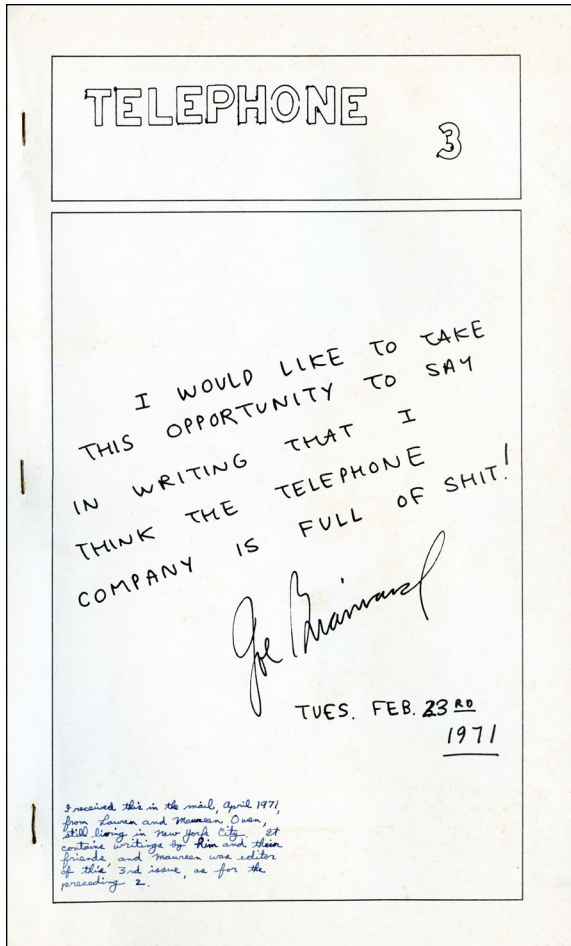 TELEPHONE
3
I WOULD LIKE TO TAKE
THIS OPPORTUNITY TO SAY
IN WRITING THAT I
THINK THE TELEPHONE
COMPANY IS FULL OF SHIT!
Joe Brainard
TUES. FEB. 23RD
1971
I received this in the mail, April 1971,
from Lauren and Maureen Owen,
still living in New York City. It
contains writings by him and their
friends and Maureen was editor
of this 3rd issue, as for the
preceding 2.